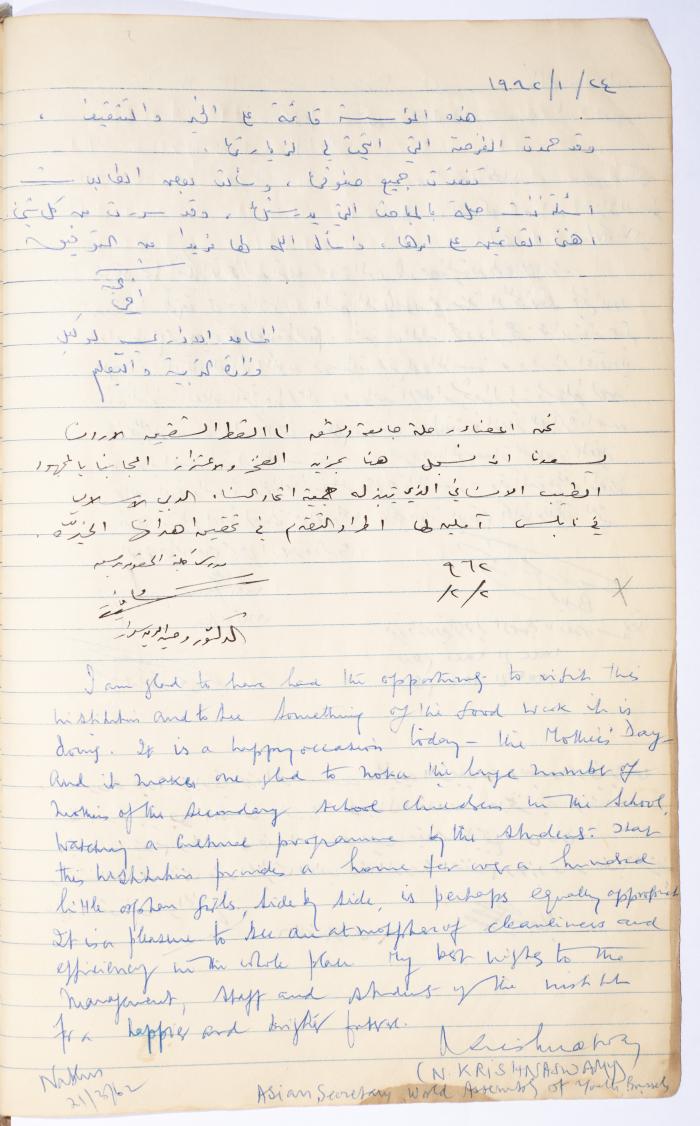 ١٩٦٢/١/٢٤
هذه المؤسسة قائمة على الخير والتثقيف ،
وقد حمدت الفرصة التي اتيحت لي لزيارتها .
تفقدت جميع صفوفها ، وسألت بعض الطالبات
اسئلة ذات صلة بالمباحث التي يدرسنها ، وقد سررت من كل شيء
اهنئ القائمين على امرها ، واسأل الله لها مزيدا من التوفيق
المساعد الاداري لوكيل
وزارة التربية والتعليم
نحن اعضاء رحلة جامعة دمشق الى القطر الشقيق الاردن
يسعدنا ان نسجل هنا بمزيد الفخر والاعتزاز اعجابنا بالمجهود
الطيب الانساني الذي تبذله جمعية اتحاد النساء العربي
في نابلس آملين لها اطراد التقدم في تحقيق اهدافها الخيرة .
كلية الحقوق
٩٦٢
٢/٢/
الدكتور
I am glad to have had the opportunity to visit this
institution and to see something of the good work it is
doing. It is a happy occasion today – the Mothers' Day –
And it makes one glad to note the large number of
mothers of the secondary school children in the school,
watching a cultural programme by the students. That
this institution provides a home for over a hundred
little orphan girls, side by side, is perhaps equally appropriate
It is a pleasure to see an atmosphere of cleanliness and
efficiency in the whole place. My best wishes to the
Management, staff and students of the institute
for a happier and brighter future.
Nablus
21/3/62
(N. KRISHNASWAMY)
Asian Secretary, World Assembly of Youth Brussels